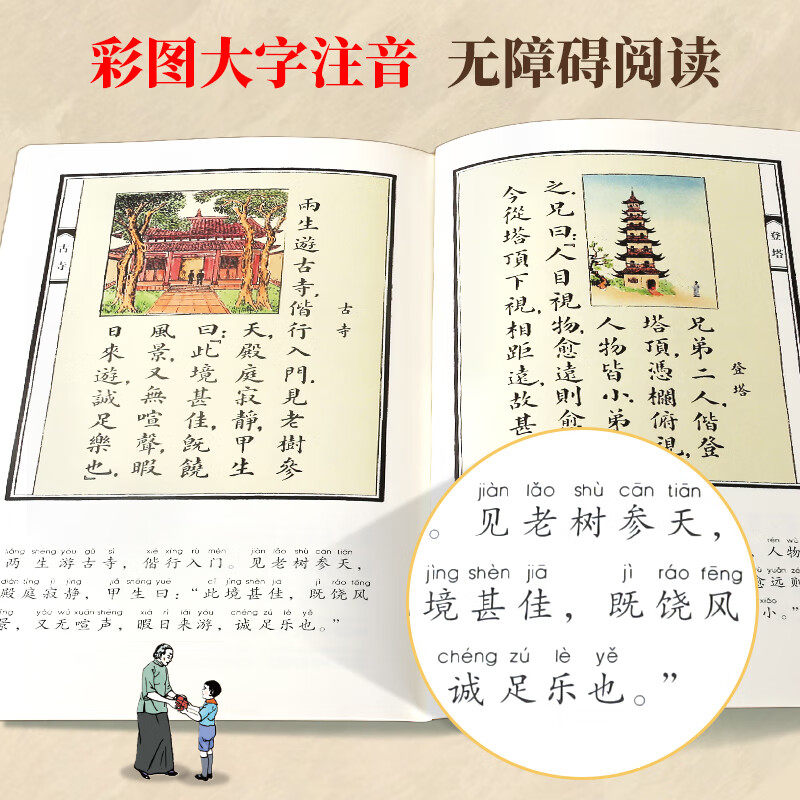 彩图大字注音 无障碍阅读
古寺
古寺
兩生遊古寺,偕行入門.見老樹參
天,殿庭寂靜,甲生
曰:「此境甚佳,既饒
風景,又無喧聲,暇
日來遊,誠足樂也.」
liǎng shēng yóu gǔ sì xié xíng rù mén jiàn lǎo shù cān tiān
两生游古寺,偕行入门。见老树参天,
diàn tíng jì jìng jiǎ shēng yuē cǐ jìng shèn jiā jì ráo fēng
殿庭寂静,甲生曰:“此境甚佳,既饶风
yòu wú xuān shēng xiá rì lái yóu chéng zú lè yě
景,又无喧声,暇日来游,诚足乐也。”
登塔
登塔
兄弟二人,偕登
塔頂,憑欄俯視,
人物皆小.弟
之.兄曰:「人目視物,愈遠則愈
今從塔頂下視,相距遠,故甚
rén wù
人物
yuǎn zé
愈远则
xiǎo
小。”
jiàn lǎo shù cān tiān
。见老树参天,
jìng shèn jiā jì ráo fēng
境甚佳,既饶风
chéng zú lè yě
诚足乐也。”